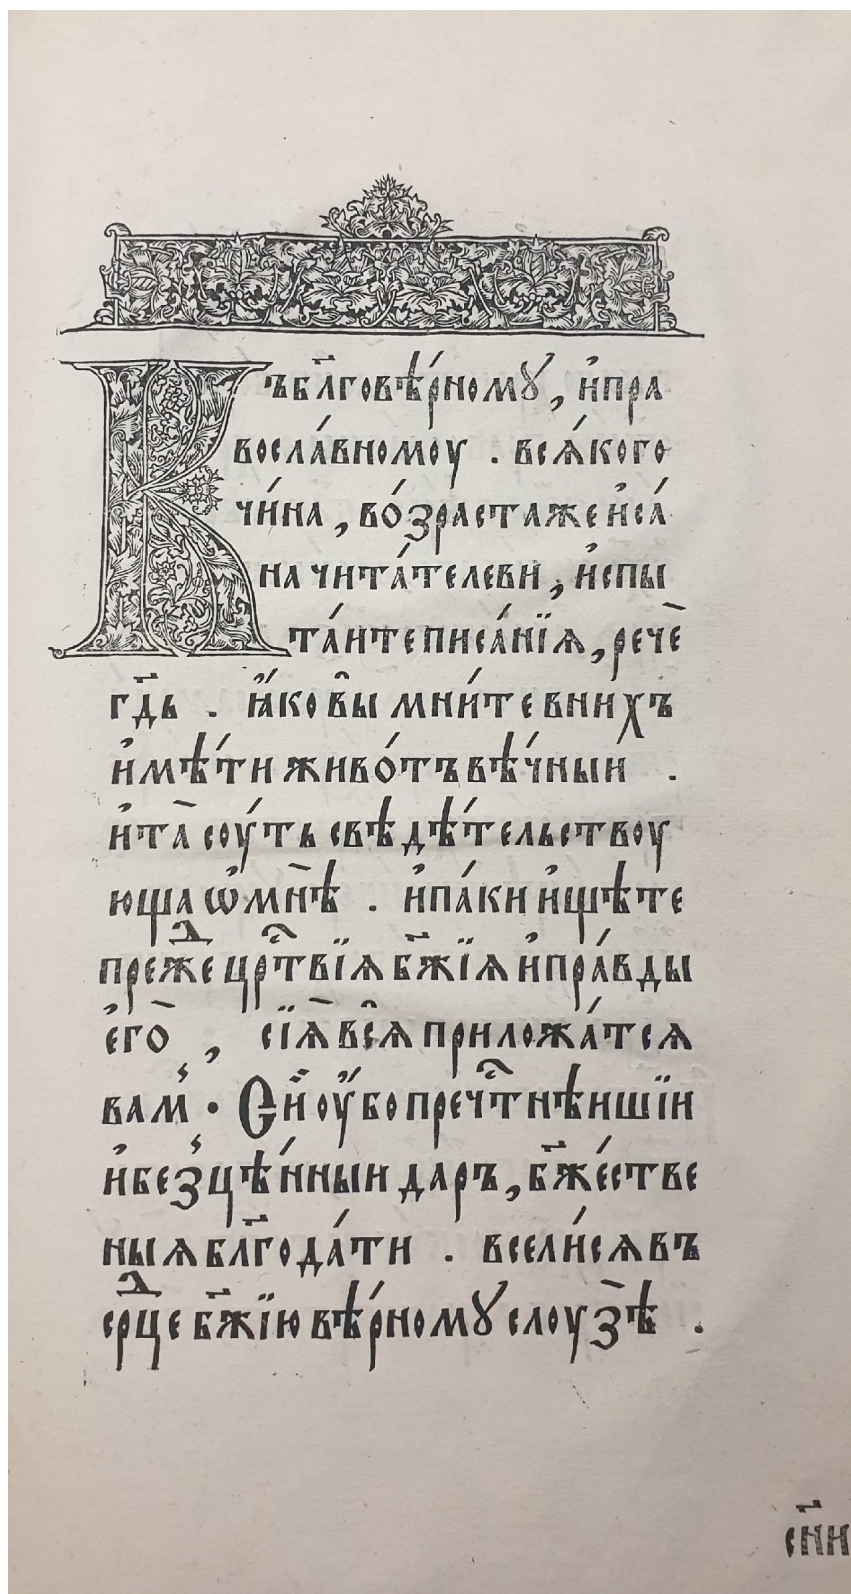 Къбл҃говѣ́рномꙋ, и҆пра
восла́вномоу . вся́кого
чи́на , во́зрастаже и҆са́
на чита́телеви , и҆спы
та́итеписа́нїѧ, рече̄
гдⷭ҇ь . ꙗ҆́ковы мни́те вни́хъ
и҆мѣ́ти живо́тъвѣ́чныи .
и҆та̀ соу́ть свѣдѣ́тельствоу
ющаѡ҆мн̀ѣ . и҆па́ки и҆щѣ́те
преⷤ҇е црⷭ҇твїѧ бж҃їѧ и҆пра́вды
е҆гѡ̀ , сїѧ̀ всѧ̑ приложа́тсѧ
вамъ • Сїи̑ оу҆́бо пречⷭ҇тнѣишїи
и҆безцѣ́нныи даръ, бж҃е́стве
ныѧ блг҃ода́ти . всели́сѧ въ
срⷣце бж҃їю вѣ́рномꙋ слоузѣ̀ .
сн҃и